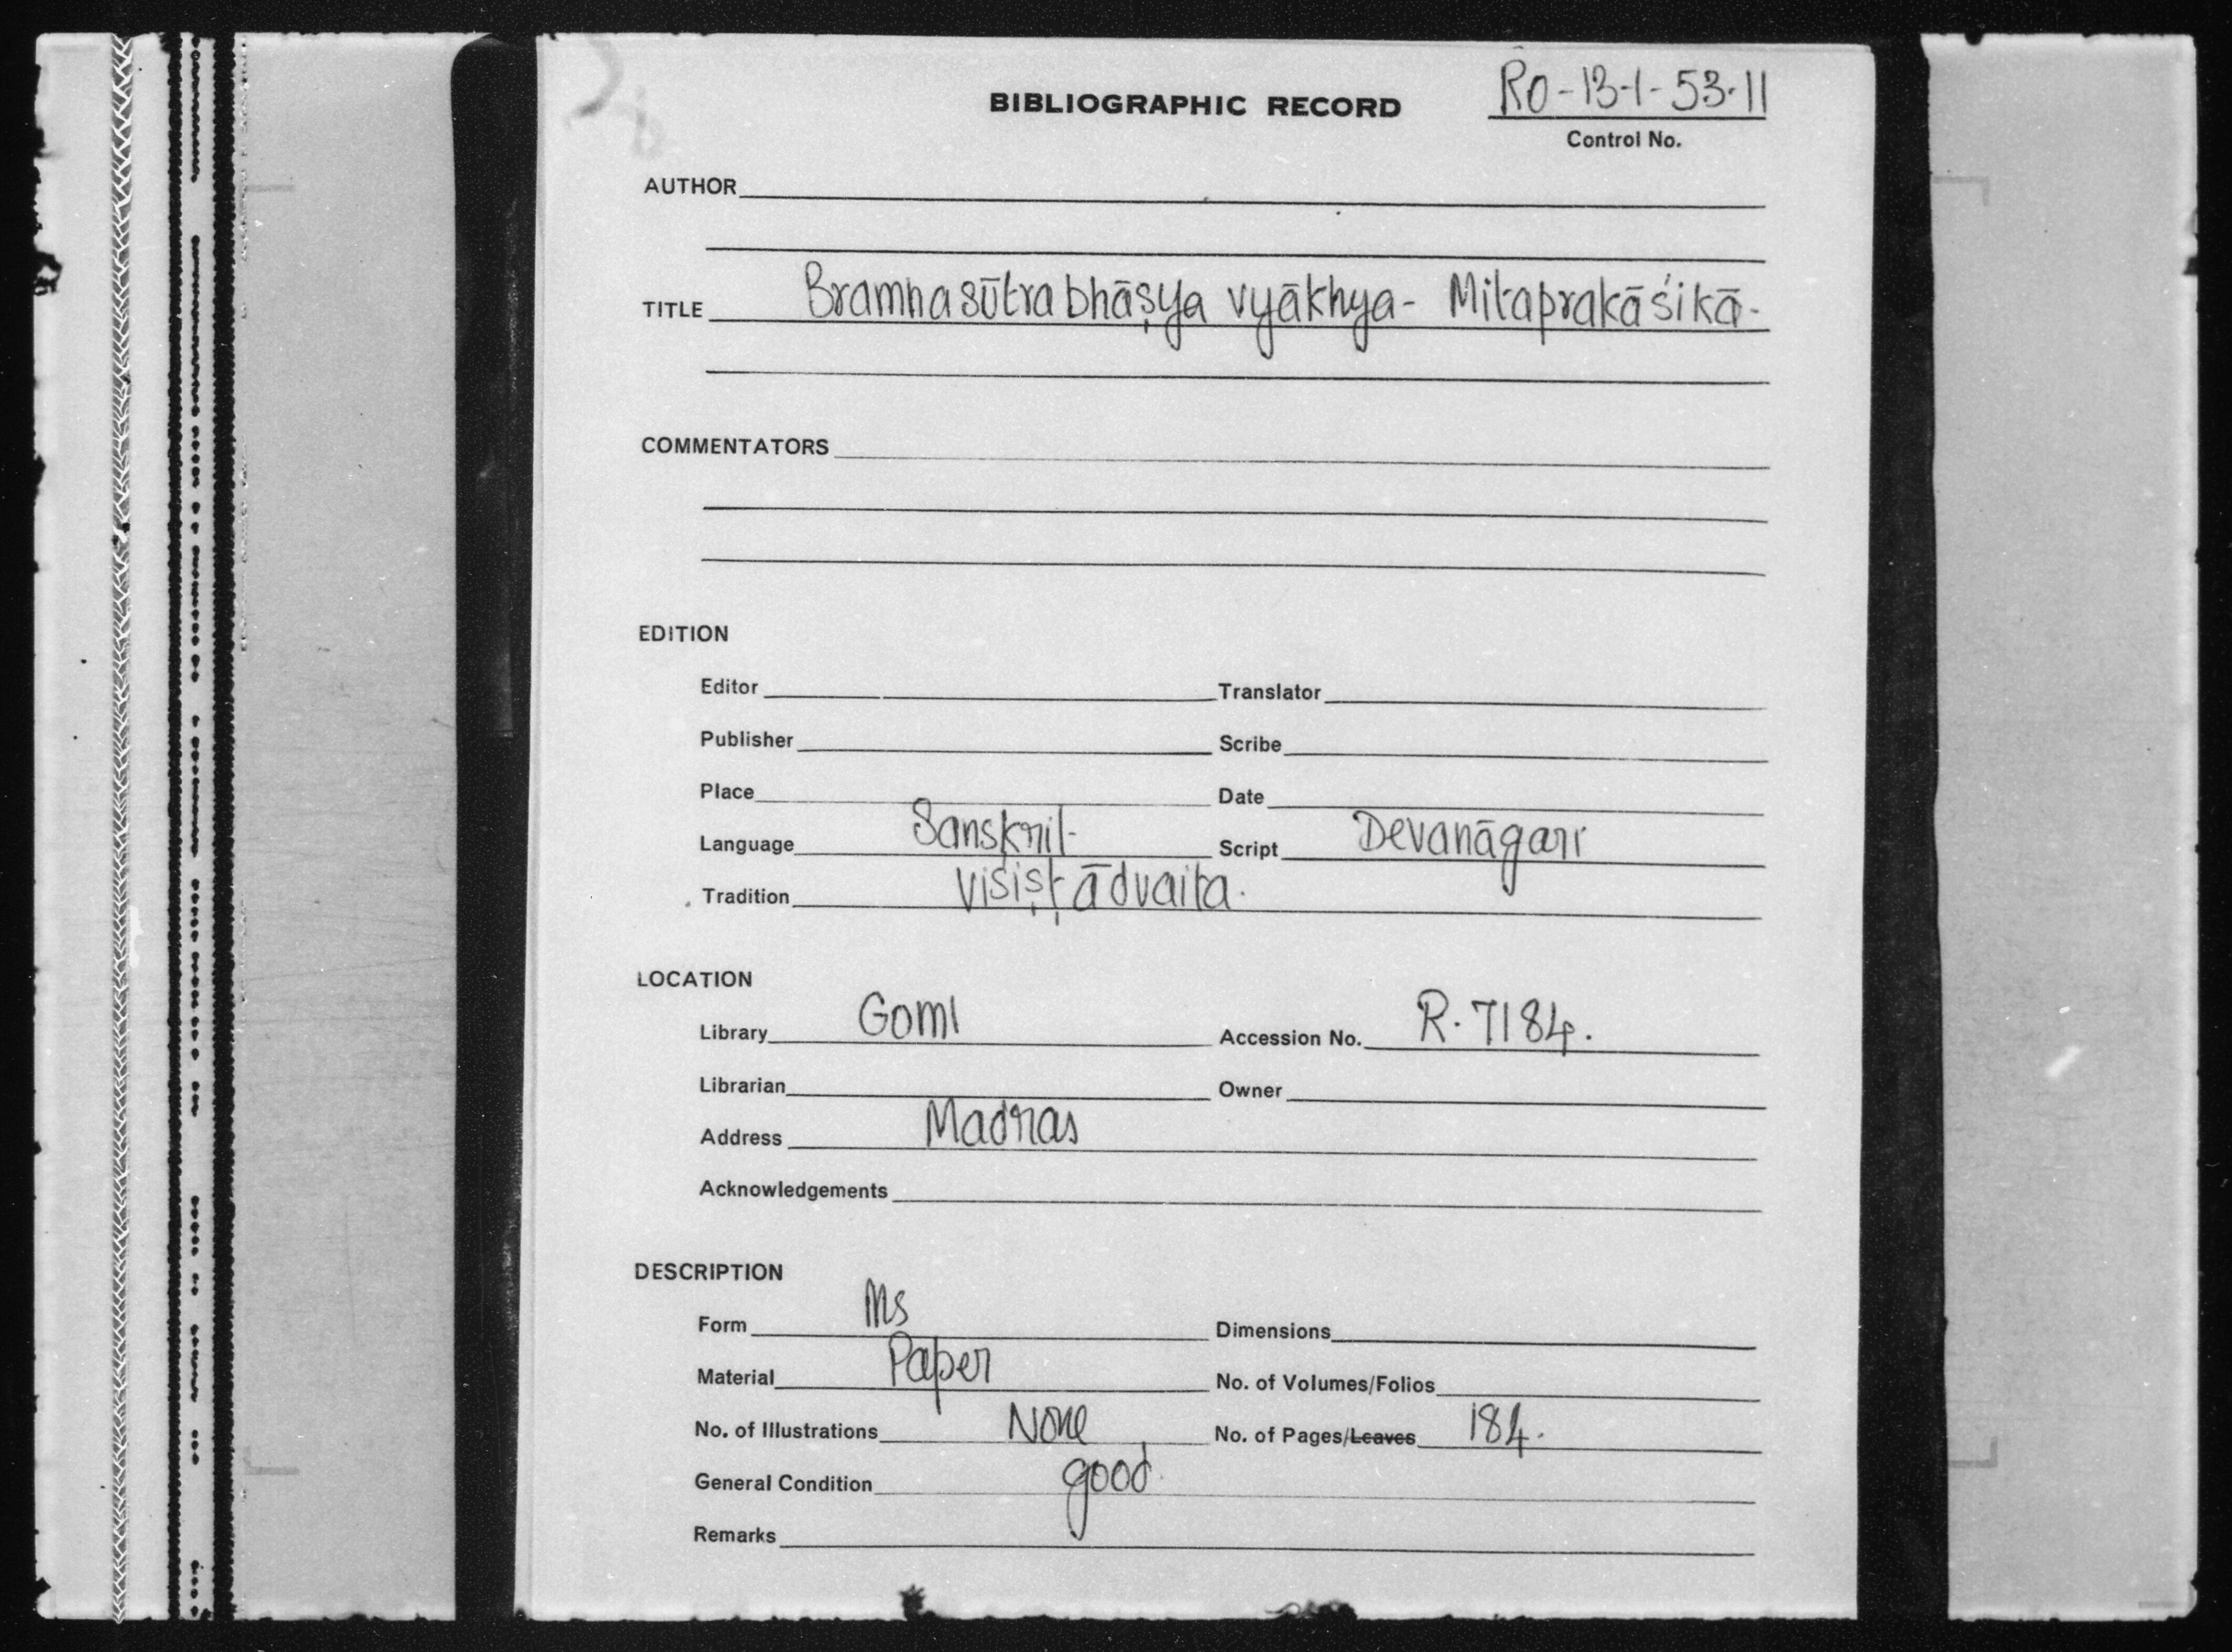 BIBLIOGRAPHIC RECORD
RO-13-1-53-11
Control No.
AUTHOR
TITLE Bramhasūtrabhāṣya vyākhya- Mitaprakāśikā-
COMMENTATORS
EDITION
Editor Translator
Publisher Scribe
Place Date
Language Sanskrit Script Devanāgari
Tradition Viśiṣṭādvaita.
LOCATION
Library Goml Accession No. R. 7184.
Librarian Owner
Address Madras
Acknowledgements
DESCRIPTION
Form Ms Dimensions
Material Paper No. of Volumes/Folios
No. of Illustrations None No. of Pages/Leaves 184.
General Condition good.
Remarks